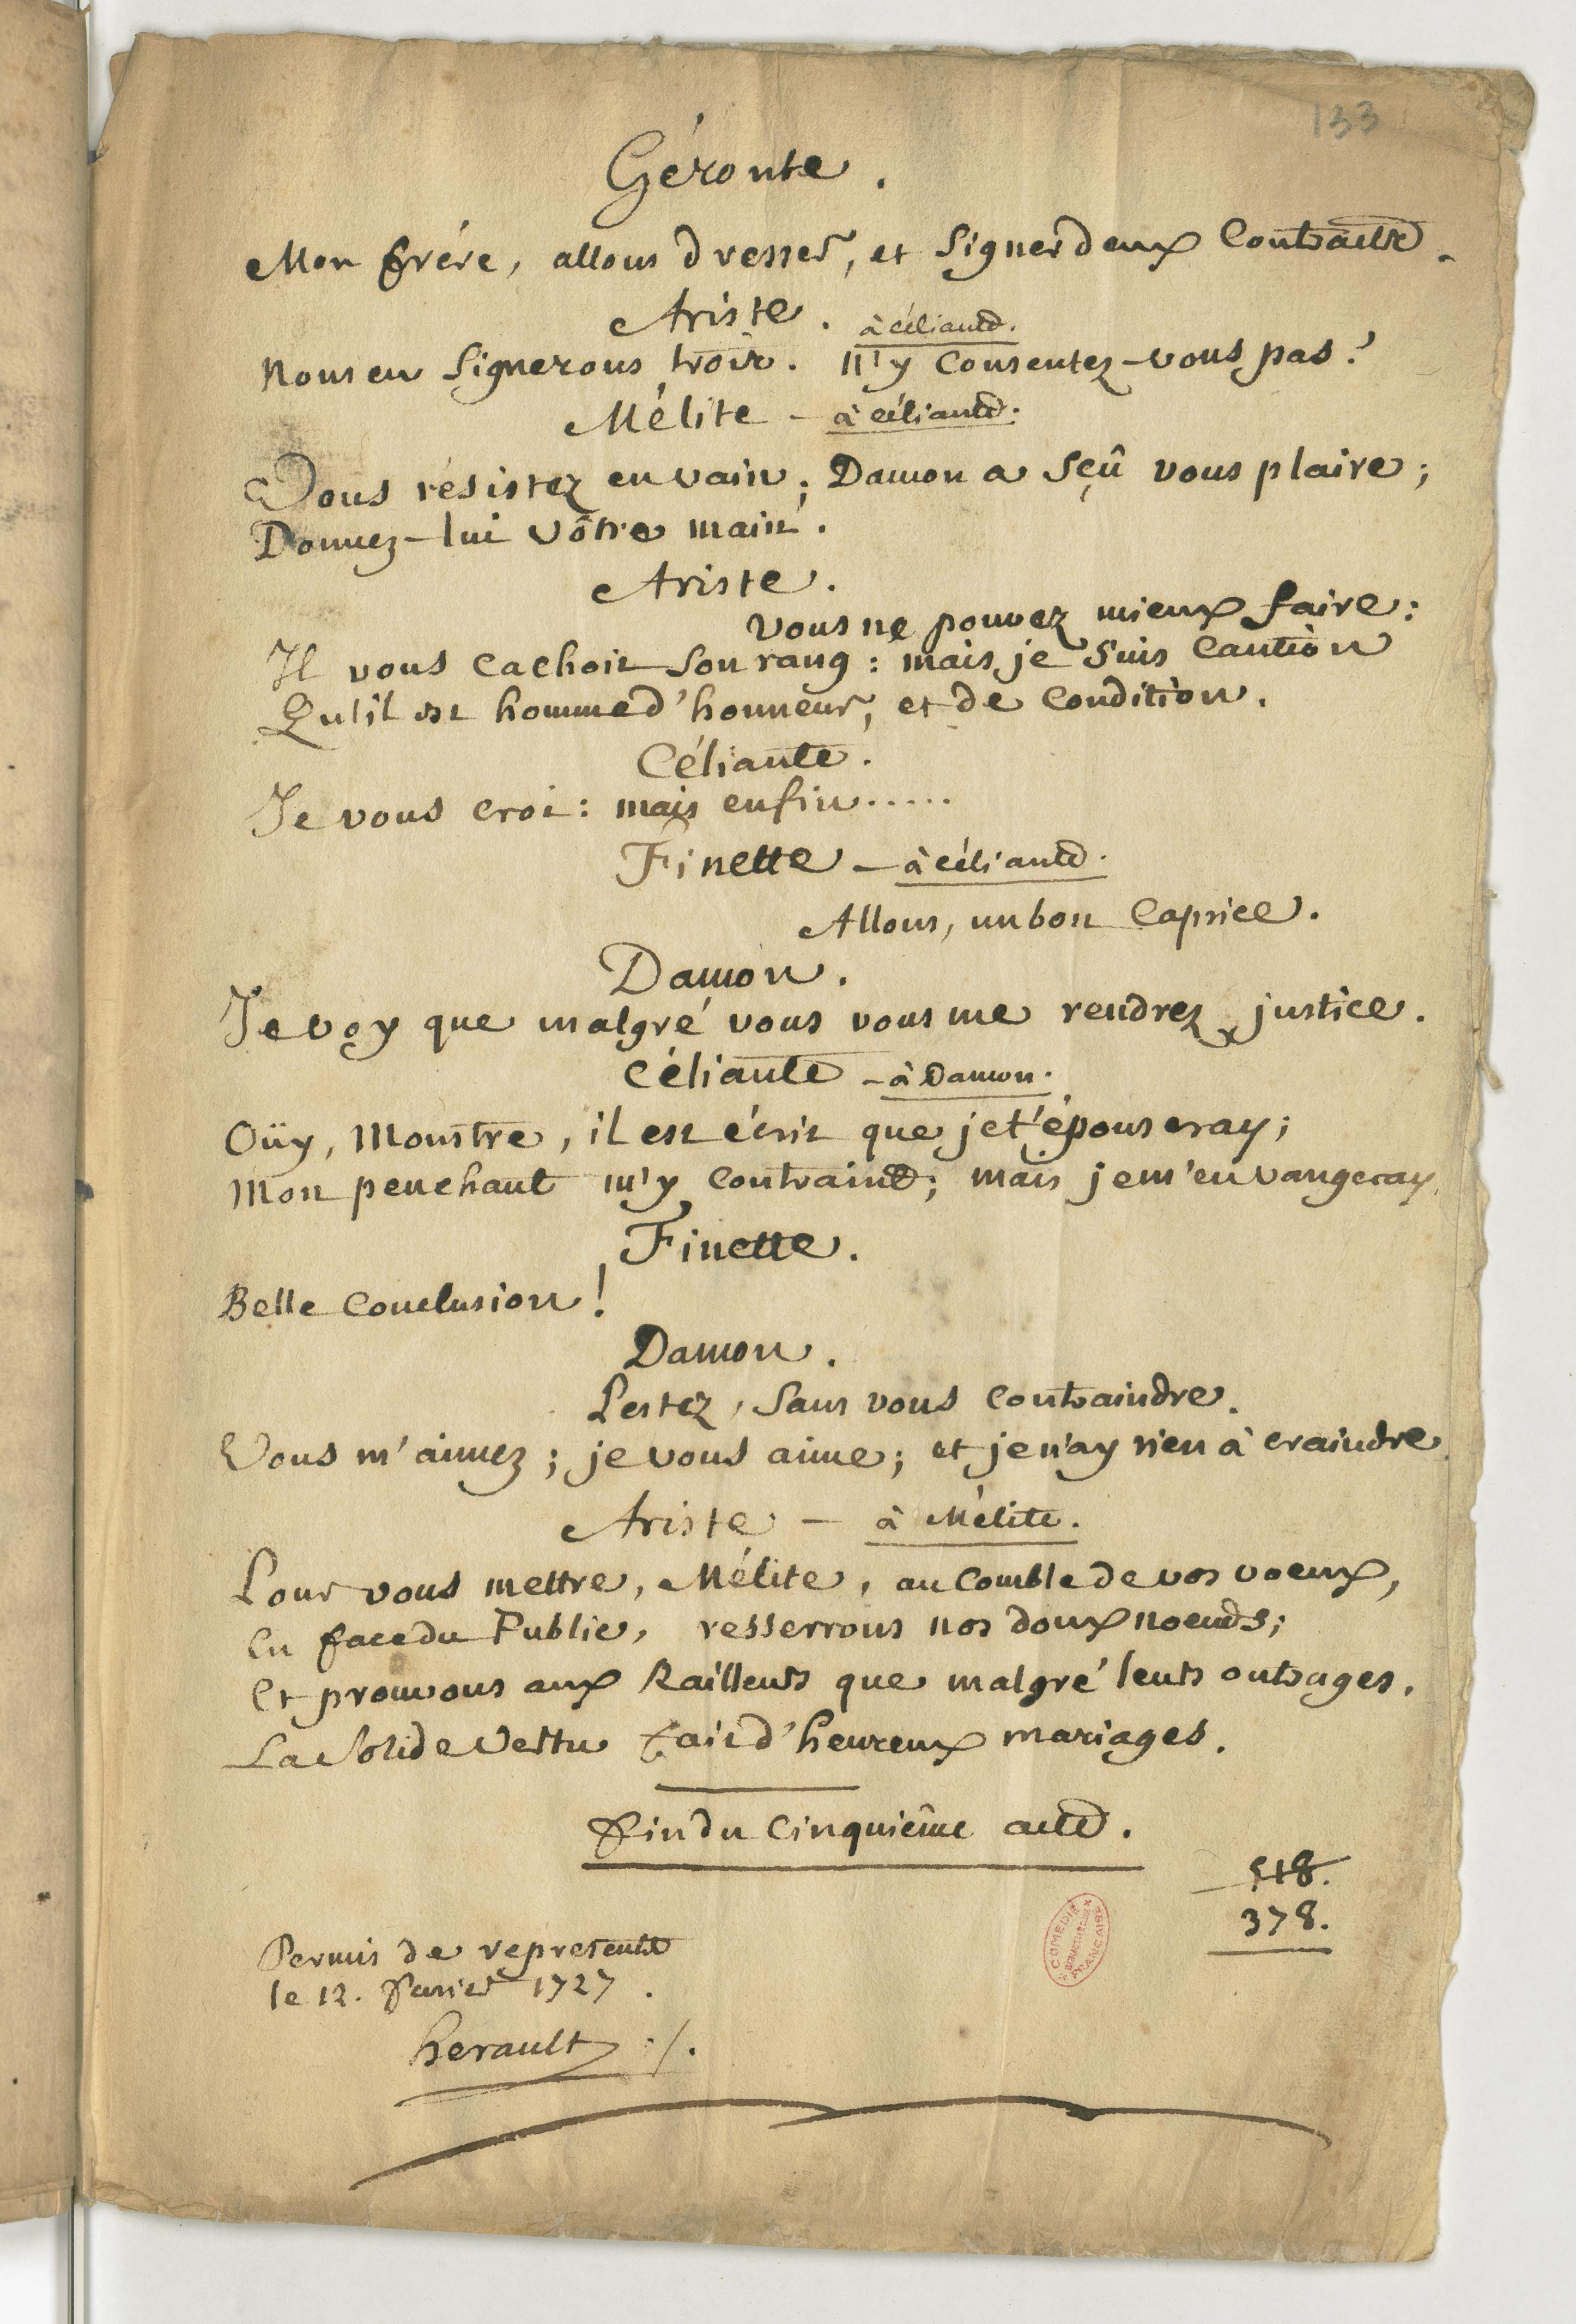 133
Géronte.
Mon frére, allons dresser, et signer deux Contracts.
Ariste. à céliante.
Nous en signerons trois. N'y Consentez-vous pas?
Mélite - à céliante.
Vous résistez en vain; Damon a sçû vous plaire;
Donnez-lui vôtre main.
Ariste.
Vous ne pouvez mieux faire:
Il vous cachoit son rang: mais je suis Caution
Qu'il est homme d'honneur, et de Condition.
Céliante.
Je vous croi: mais enfin.....
Finette - à céliante.
Allons, un bon Caprice.
Damon.
Je voy que malgré vous vous me rendrez justice.
Céliante - à Damon.
Oüy, Monstre, il est écrit que je t'épouseray;
Mon penchant m'y Contraint; mais je m'en vangeray.
Finette.
Belle Conclusion!
Damon.
Pestez, sans vous Contraindre.
Vous m'aimez; je vous aime; et je n'ay rien à craindre.
Ariste - à Mélite.
Pour vous mettre, Mélite, au Comble de vos voeux,
En face du Public, resserrons nos doux noeuds;
Et prouvons aux Railleurs que malgré leurs outrages,
La solide Vertu fait d'heureux mariages.
Fin du Cinquiême acte.
518.
378.
Permis de representer
le 12. 1727.
herault
COMEDIE FRANCAISE